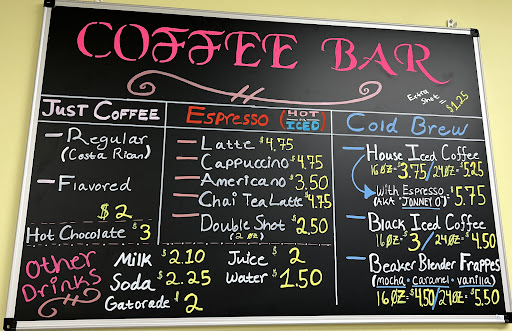 COFFEE BAR
Extra
Shot = $1.25
JUST COFFEE
- Regular
(Costa Rican)
- Flavored
$2
Hot Chocolate $3
Espresso (HOT or ICED)
- Latte $4.75
- Cappuccino $4.75
- Americano $3.50
- Chai Tea Latte $4.75
- Double Shot $2.50
(2 oz)
Cold Brew
- House Iced Coffee
16oz=$3.75/24oz=$5.25
With Espresso $5.75
(AKA "JONNEY O")
- Black Iced Coffee
16oz=$3/24oz=$4.50
- Beaker Blender Frappes
(mocha · caramel · vanilla)
16oz=$4.50/24oz=$5.50
Other
Drinks
Milk $2.10
Soda $2.25
Gatorade $2
Juice $2
Water $1.50